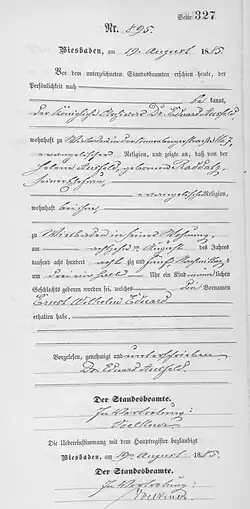 Seite 327
Nr. 895.
Wiesbaden, am 19. August 1885
Vor dem unterzeichneten Standesbeamten erschien heute, der
Persönlichkeit nach
bekannt,
der Königliche Dr. Eduard Ausfeld
wohnhaft zu Wiesbaden
evangelischer Religion, und zeigte an, daß von der
Helene Ausfeld, geborenen
seiner Ehefrau,
evangelischer Religion,
wohnhaft bei ihm
zu Wiesbaden in seiner Wohnung,
am August des Jahres
tausend acht hundert acht zig und fünf Nachmittags
um drei ein halb Uhr ein Kind männlichen
Geschlechts geboren worden sei, welches die Vornamen
Ernst Wilhelm Eduard
erhalten habe.
Vorgelesen, genehmigt und unterschrieben
Dr. Eduard Ausfeld
Der Standesbeamte.
In Vertretung:
Die Uebereinstimmung mit dem Hauptregister beglaubigt
Wiesbaden, am 19. August 1885.
Der Standesbeamte.
In Vertretung: